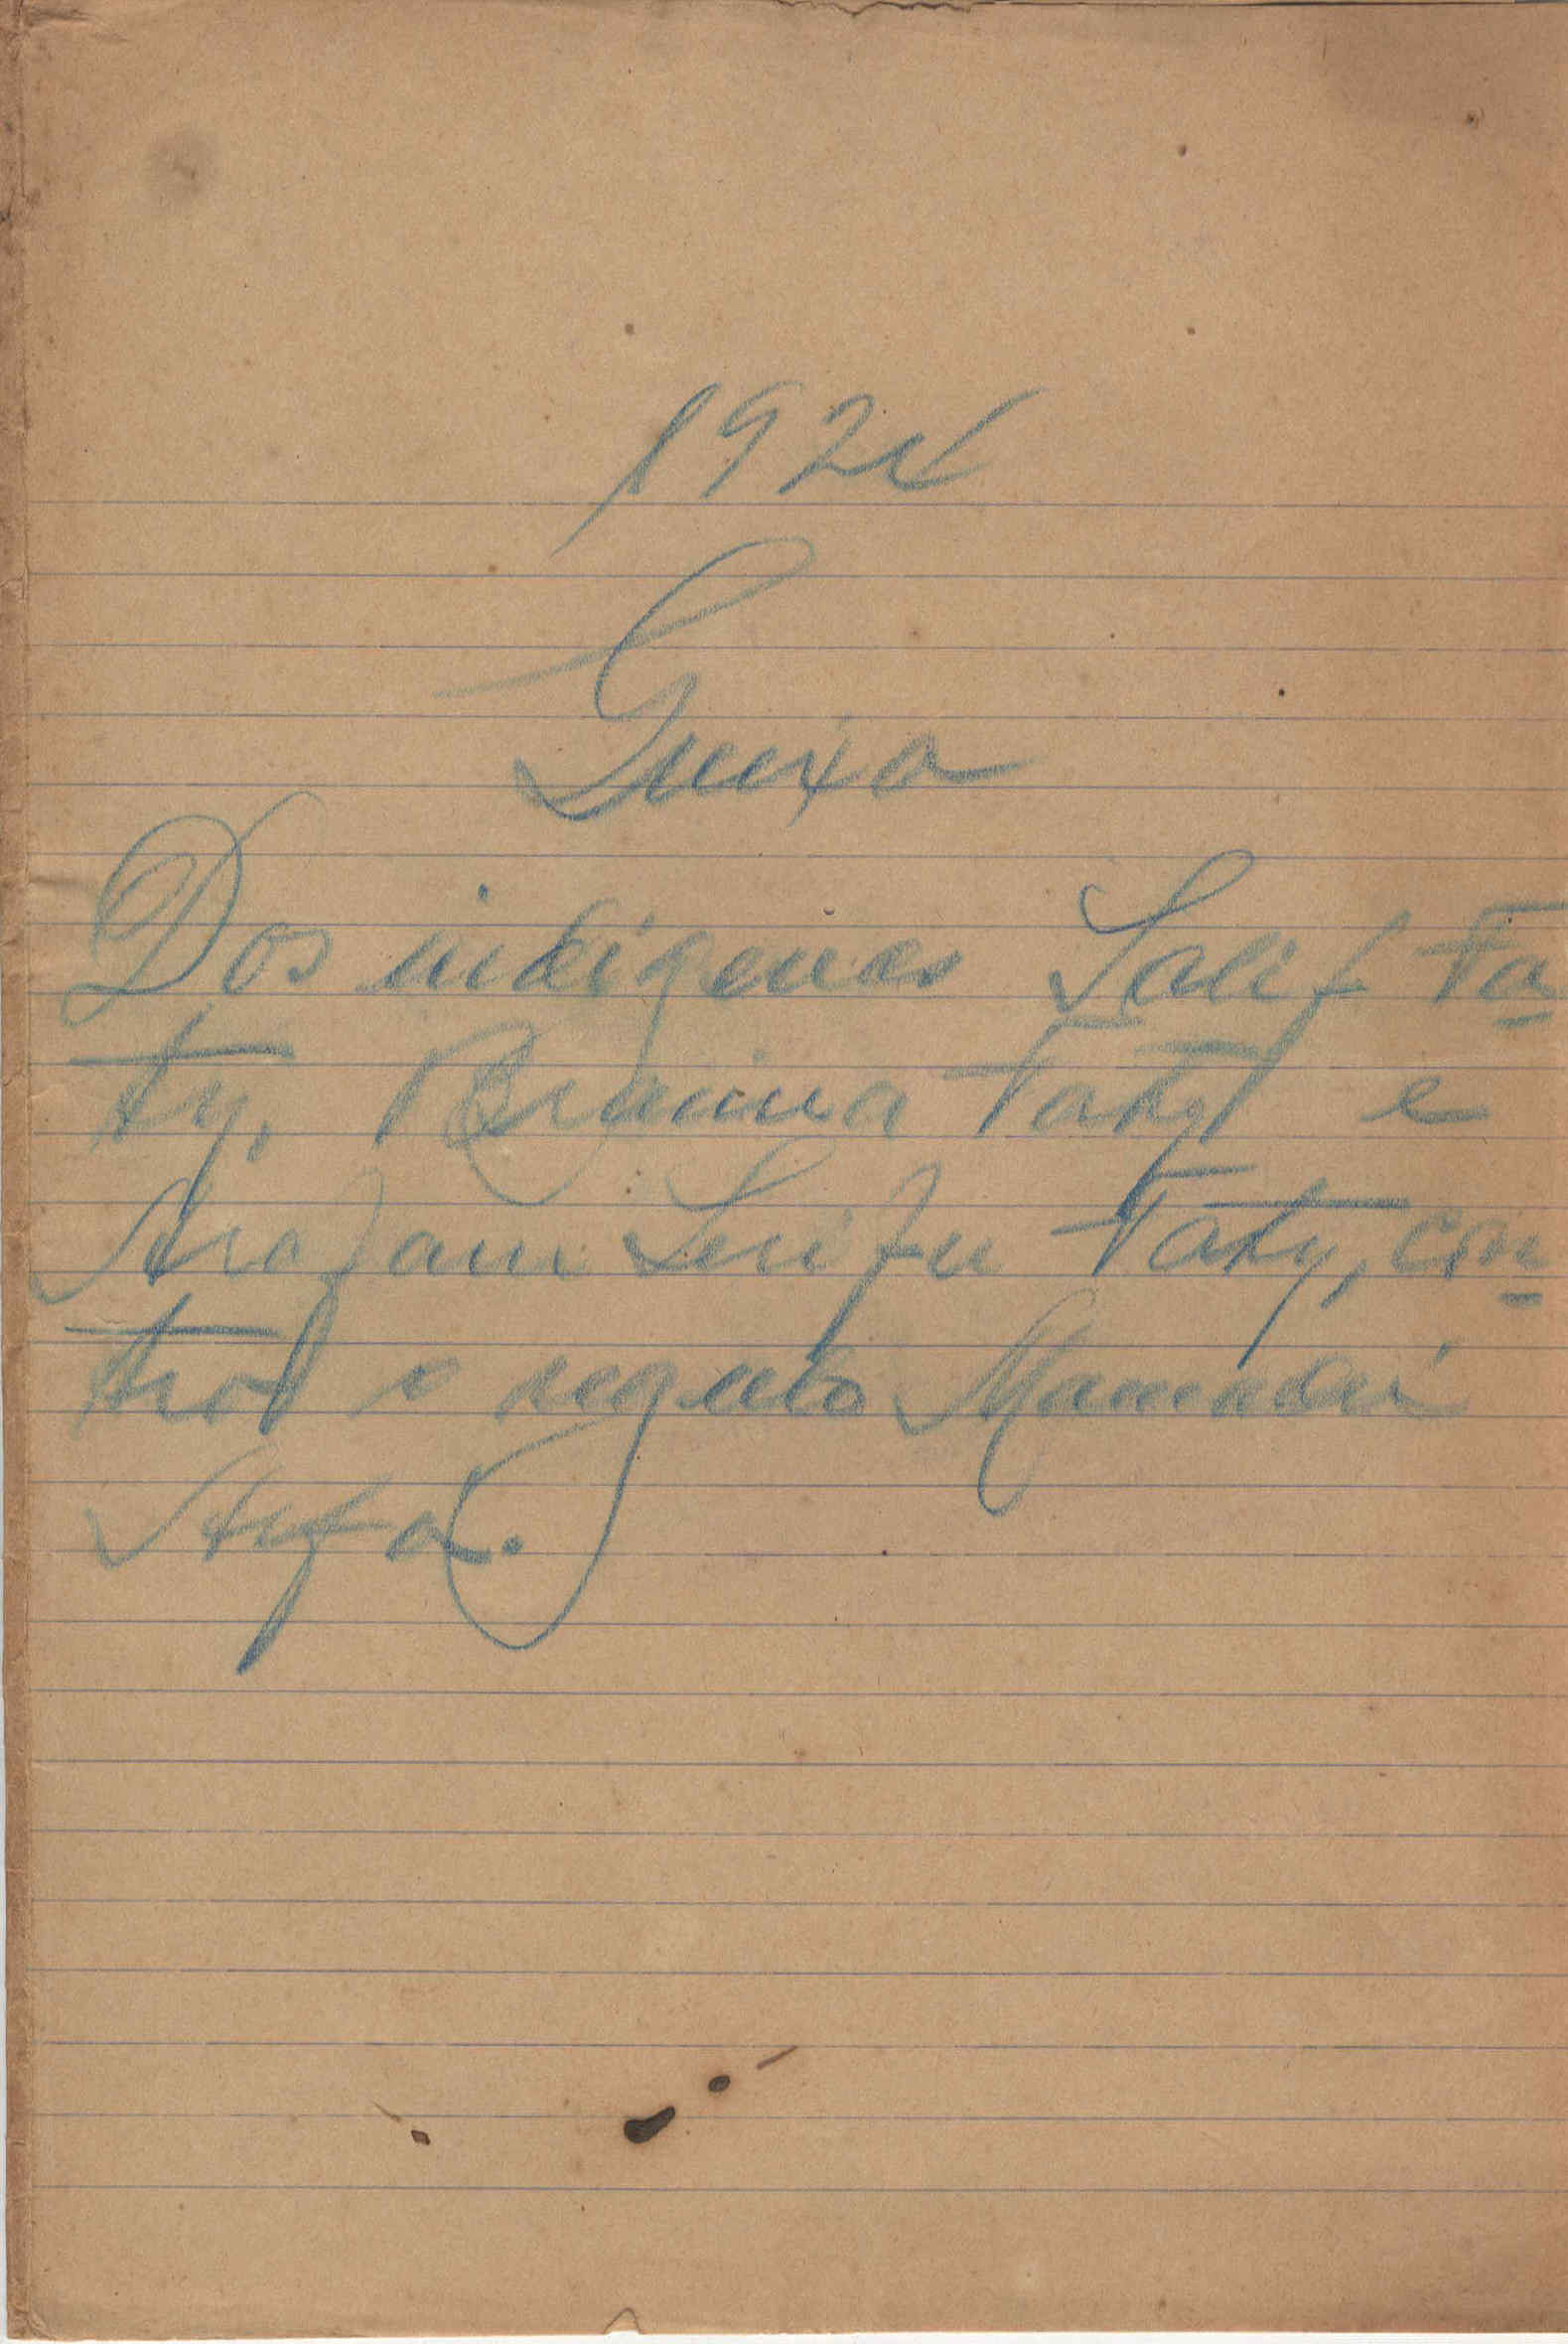 1924
Queixa
Dos indigenas Salif Fa-
ty, Braima Faty e
Arafam Seifu Faty, con-
tra o regulo Mamadú
Arfa.